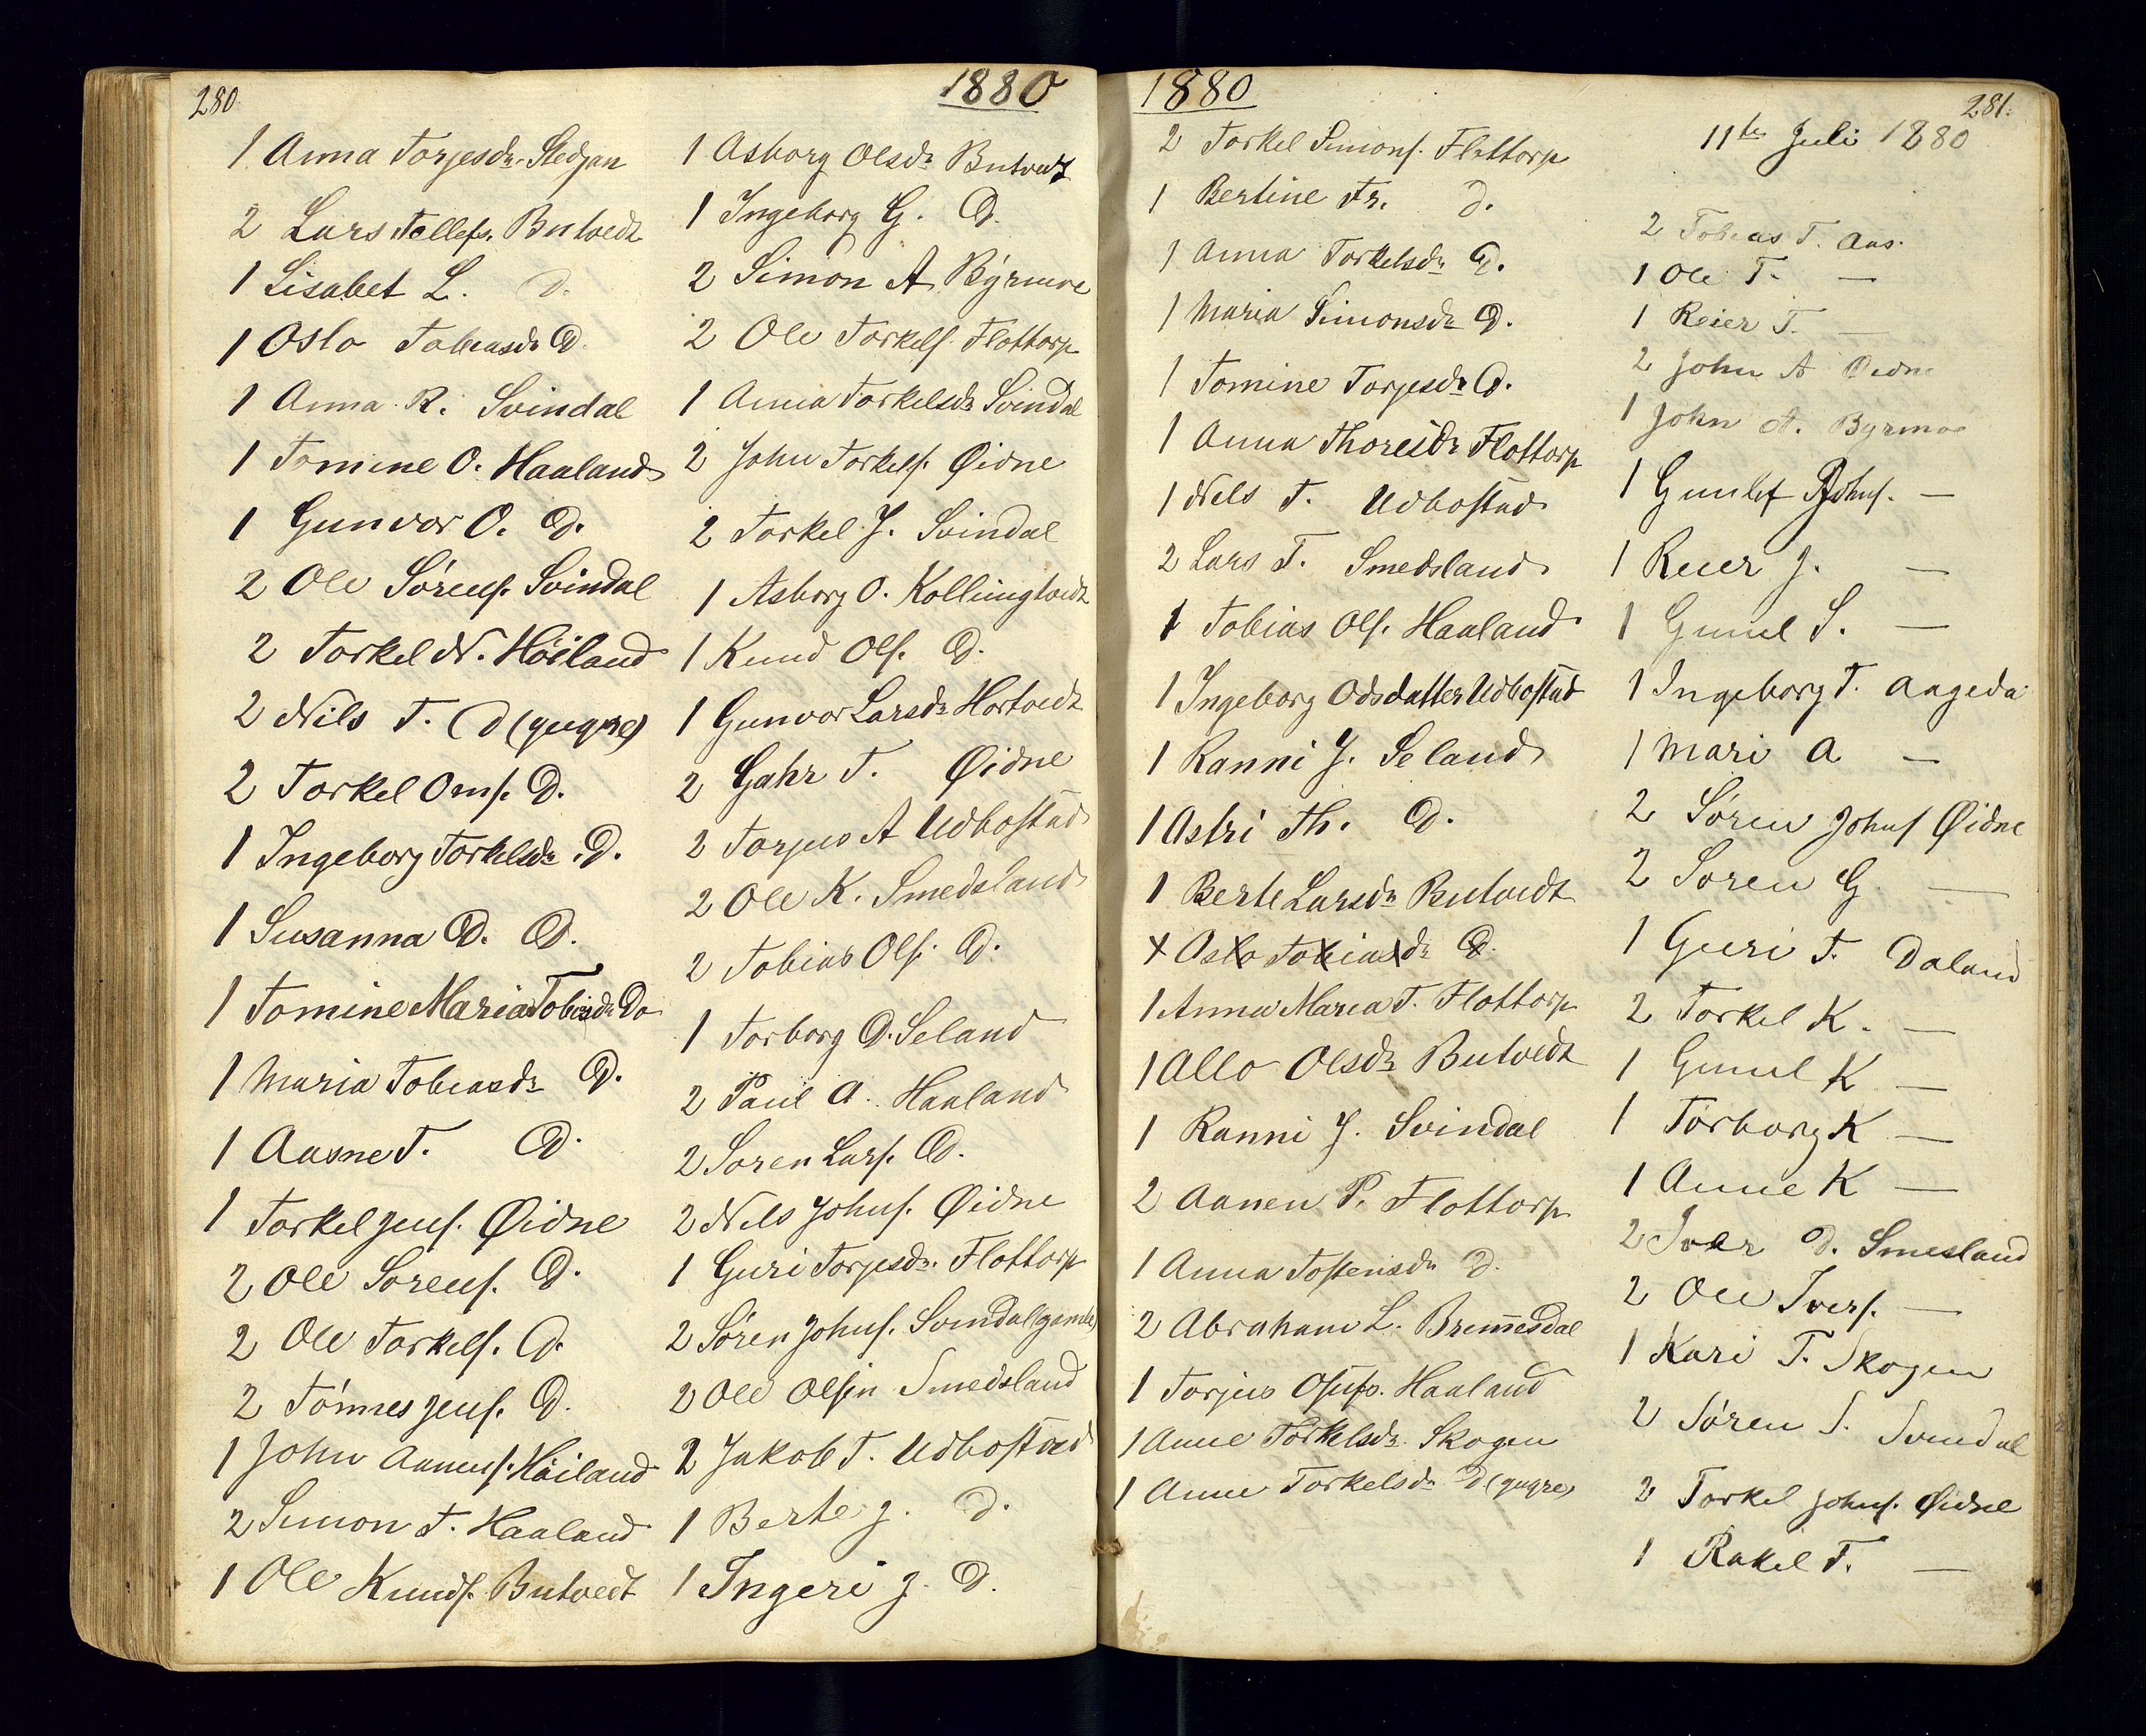 280
1880
1 Anna Torjesdr. Stedjan
2 Lars Tellefs. Butvedt
1 Lisabet L. D.
1 Oslo Tobiasdr D.
1 Anna R. Svindal
1 Tomine O. Haaland
1 Gunvor O. D.
2 Ole Sørens. Svindal
2 Torkel N. Höiland
2 Nils T. D (yngre)
2 Torkel Oms. D.
1 Ingeborg Torkelsdr D.
1 Susanna D. D.
1 Tomine Maria Tobiasdr Do
1 Maria Tobiasdr D.
1 Aasne T. D.
1 Torkel Jens. Øidne
2 Ole Sorens. D.
2 Ole Torkels. D.
2 Tönnes Jens. D.
1 John Aanens. Höiland
2 Simon T. Haaland
1 Ole Knuds. Butvedt
1 Asborg Olsdr Butvedt
1 Ingeborg G. D.
2 Simon A Byrmoe
2 Ole Torkels. Flottorp
1 Anna Torkelsdr Svindal
2 John Torkels. Øidne
2 Torkel J. Svindal
1 Asborg O. Kollungtvedt
1 Knud Ols. D.
1 Gunvor Larsdr Hortvedt
2 Gahr T. Øidne
2 Torjus A Udbostad
2 Ole K. Smedsland
2 Tobias Ols. D.
1 Torborg D. Seland
2 Paul A. Haaland
2 Soren Lars. D.
2 Nils Johns. Øidne
1 Guri Torjesdr. Flottorp
2 Søren Johns. Svindal (gamle)
2 Ole Olsen Smedsland
2 Jakob T. Udbostad
1 Berte J. D.
1 Ingeri J. D.
1880
281.
2 Torkel Simons. Flottorp
1 Bertine Fr. D.
1 Anna Torkelsdr D.
1 Maria Simonsdr D.
1 Tomine Torjesdr D.
1 Anna Thoresdr Flottorp
1 Nels T. Udbostad
2 Lars T. Smedsland
1 Tobias Ols. Haaland
1 Ingeborg Odsdatter Udbostad
1 Ranni J. Seland
1 Astri Th. D.
1 Berte Larsdr Butvedt
x Oslo Tobiasdr D.
1 Anna Maria T. Flottorp
1 Allo Olsdr Butvedt
1 Ranni J. Svindal
2 Aanen P. Flottorp
1 Anna Tostensdr D.
2 Abraham L. Bremesdal
1 Torjus Osufs. Haaland
1 Anne Torkelsdr. Skogen
1 Anne Torkelsdr D (yngre)
11te Juli 1880
2 Tobias T. Aas.
1 Ole T. —
1 Reier T. —
2 John A Øidne
1 John A. Byrmoe
1 Gunlef Johns. —
1 Reier J. —
1 Gunil S. —
1 Ingeborg T. Aageda
1 Mari A —
2 Søren Johns Øidne
2 Soren G —
1 Guri T. Daland
2 Torkel K. —
1 Gunil K —
1 Torborg K —
1 Anne K —
2 Iver D. Smesland
2 Ole Ivers. —
1 Kari T. Skogen
2 Søren S. Svindal
2 Torkel Johns. Øidne
1 Rakel T. —